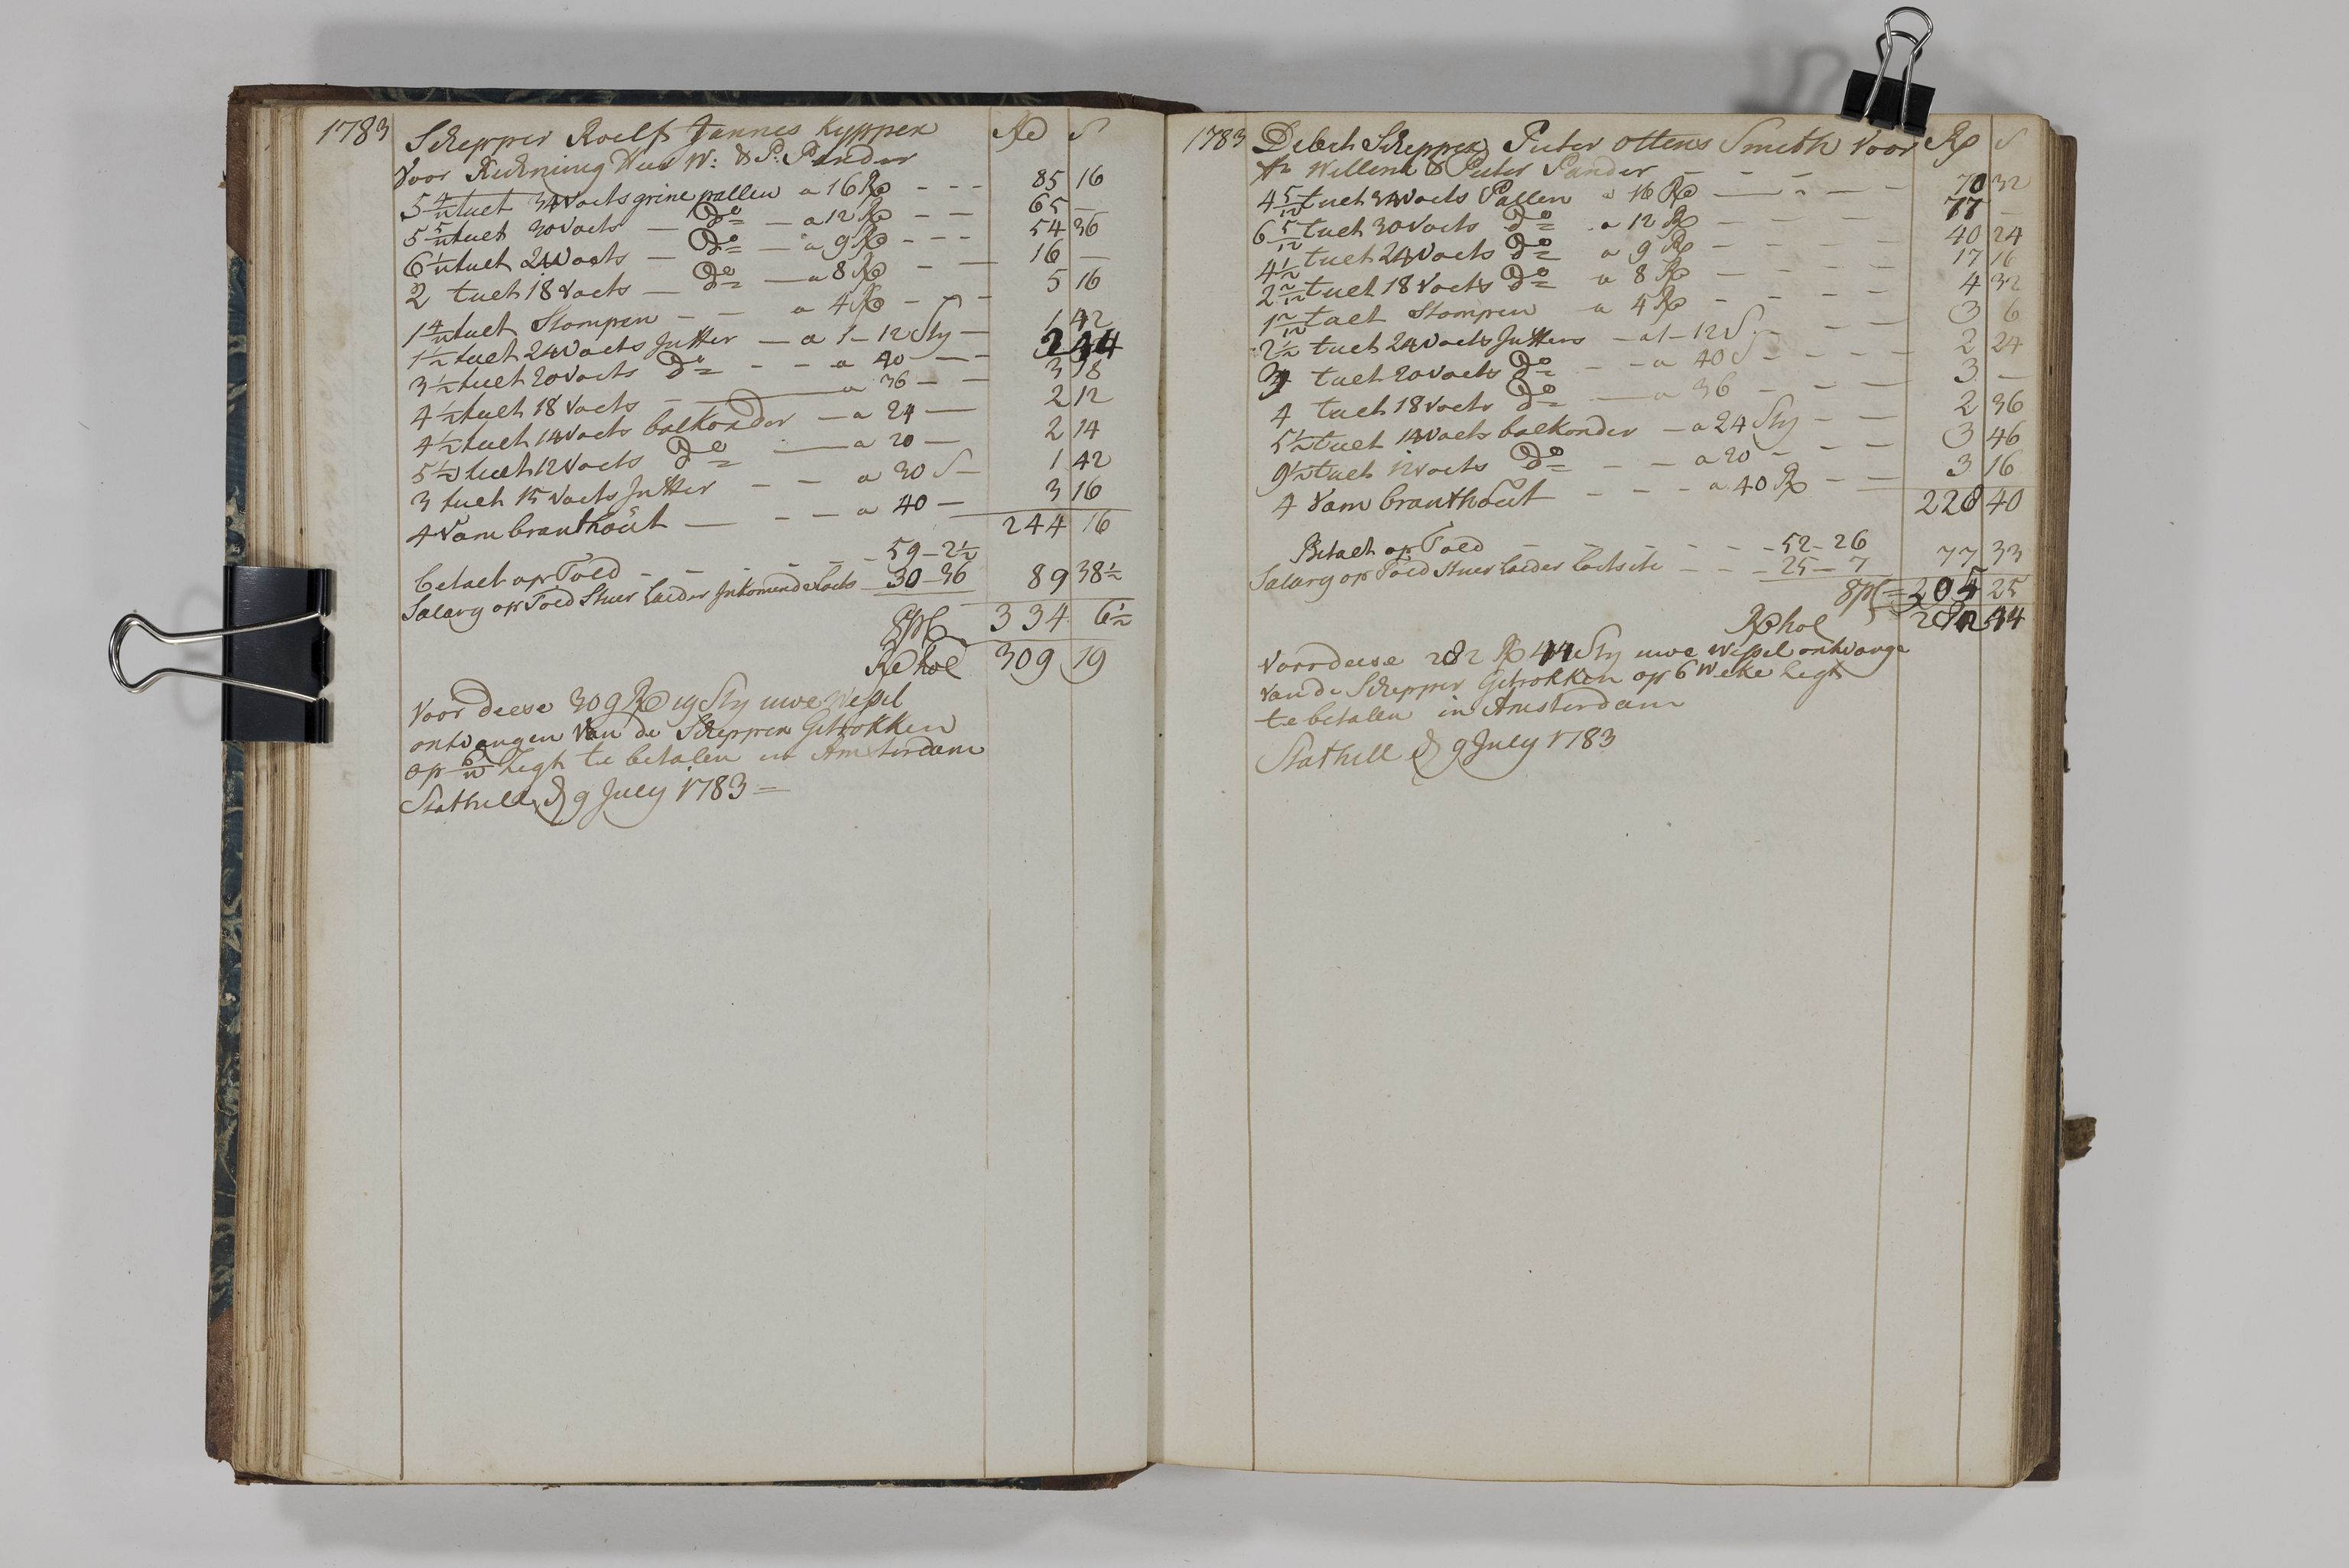 1783 Schepper Roelf Jannes Kypper Rd S
Voor Rickning Heer W: & P: Pander
5 4/12 tuelt 34 Voets grine pallen a 16 Rd - - - 85 16
5 5/12 tuelt 30 Voets — Do — a 12 Rd - — 65 —
6 1/12 tuelt 24 Voets — Do — a 9 Rd - - - 54 36
2 tuelt 18 Voets — Do — a 8 Rd - — 16 —
1 4/12 tuelt Stompen — — a 4 Rd - - - 5 16
1 1/2 tuelt 24 Voets Jutter — a 1 - 12 Sty — 1 42
3 1/2 tuelt 20 Voets Do - - a 40 — - 2 44
4 1/2 tuelt 18 Voets — a 36 — - 3 18
4 1/2 tuelt 14 Voets balkonder — a 24 — 2 12
5 1/2 tuelt 12 Voets Do — a 20 — 2 14
3 tuelt 15 Voets Jutter - - a 30 S — 1 42
4 Vam branthout — - — a 40 — 3 16
244 16
betalt op Told - - - - - 59 - 2 1/2
Salary op Told Stuer Laeder Inkomende Loots 30 - 36 89 38 1/2
334 6 1/2
Rd hol 309 19
Voor deese 309 Rd 19 Sty uwe Wessel
ontvangen Van de Schepper Getrokken
op 6/w Segt te betalen in Amsterdam
Stathill d 9 July 1783 =
1783 Debet Schepper Pieter Ottens Smith Voor Rd S
Hr Willem & Pieter Pander
4 5/12 tuelt 34 Voets Pallen a 16 Rd — - — 70 32
6 5/12 tuelt 30 Voets Do a 12 Rd 77 —
4 1/2 tuelt 24 Voets Do a 9 Rd - - - - 40 24
2 2/12 tuelt 18 Voets Do a 8 Rd - - - - 17 16
1 2/12 tuelt Stompen a 4 Rd - - - 4 32
2 1/2 tuelt 24 Voets Jutters — a 1 - 12 S - - - 3 6
3 tuelt 20 Voets Do - - a 40 S - - - - 2 24
4 tuelt 18 Voets Do — a 36 - - - 3 —
5 1/2 tuelt 14 Voets balkonder — a 24 Sty - — 2 36
9 1/2 tuelt 12 Voets Do - - a 20 - - - 3 46
4 Vam branthout - - - a 40 Rd - — 3 16
228 40
Betalt op Told - - - - - 52 - 26
Salary op Told Stuer Laeder Lootsete - - - 25 - 7 77 33
25
Rd hol 282 44
Voor deese 282 Rd 44 Sty uwe Wissel ontvange
van de Schepper Getrokken op 6 Weke Segt
te betalen in Amsterdam
Stathill d 9 July 1783